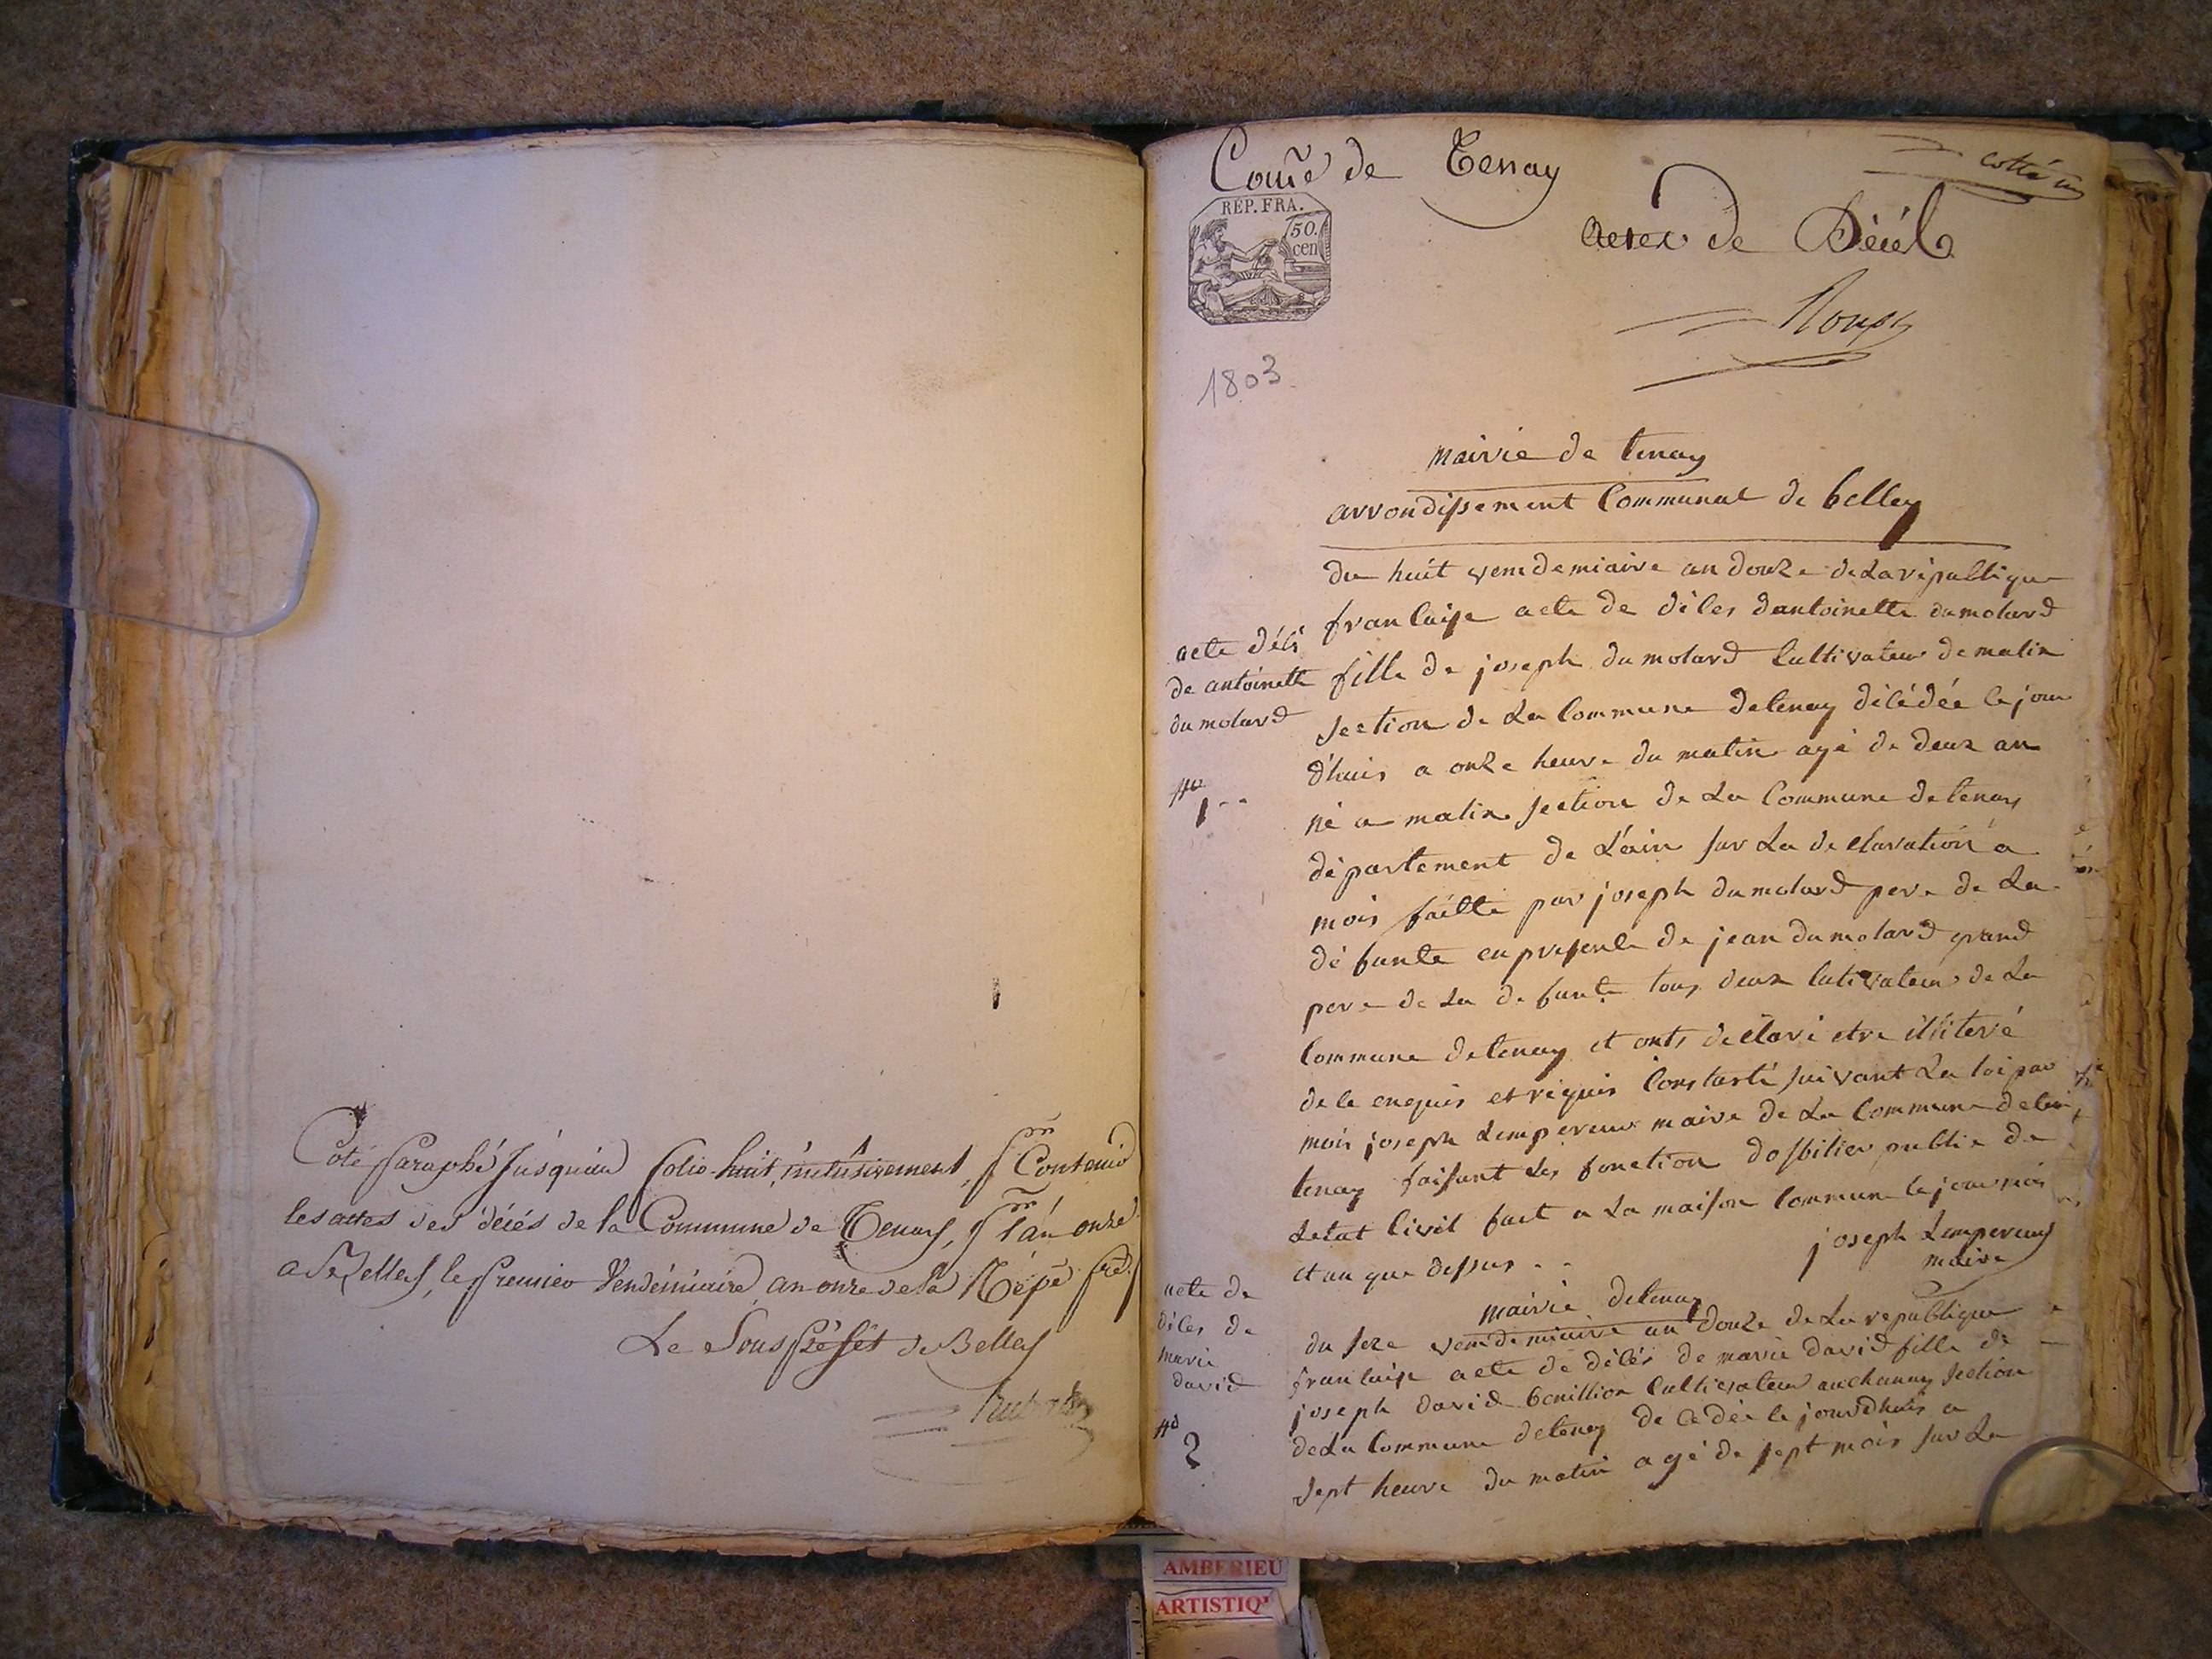 Coté & paraphé jusqu'au folio huit, inclusivement, pr Contenir
les actes des décés de la Commune de Tenay, pr l'an onze
a Belley, le premier Vendémiaire an onze de la Répe fse
Le Sous préfet de Belley
Come de Tenay
cotté un
REP. FRA.
50.
cen
actes de Décés
1803
mairie de tenay
arrondissement Communal de belley
du huit vemdemiaire an douze de La république
francaise acte de décès dantoinette dumolard
fille de joseph dumolard Cultivateur de malix
Section de La Commune de tenay décédée le jour
d'huis a onze heure du matin agé de deux an
né a malix section de La Commune de tenay
département de L'ain sur La declaration a
mois faitte par joseph dumolard pere de La
défunte en presence de jean dumolard grand
pere de La defunte tous deux cultivateur de La
Commune de tenay et onts declaré etre illiteré
de ce enquis et réquis Constaté suivant La loi par
mois joseph Lempereur maire de La Commune de
tenay faisant Les fonction dofficier public de
Letat Civil fait a La maison Commune le jour mois
et an que dessus
joseph Lempereur
maire
acte décé
de antoinette
dumolard
no
1
mairie de tenay
du seze vemdemiaire an douze de La republique
francaise acte de décés de marie david fille de
joseph david bonillion Cultivateur au chanay section
de La Commune de tenay decedée le jourdhuis a
sept heure du matin agé de sept mois sur La
acte de
déces de
marie
david
no
2
AMBERIEU
ARTISTIQ